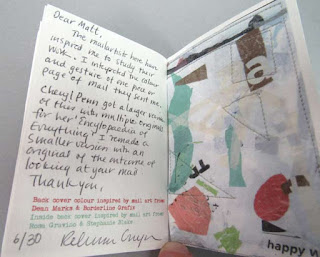 Dear Matt,
The mailartists here have
inspired me to study their
work. I interpreted the colour
and gesture of one piece or
page of mail they sent me.
Cheryl Penn got a larger version
of this with multiple originals
for her "Encyclopaedia of
Everything". I remade a
smaller version with an
original of the outcome of
looking at your mail
Thank you,
Back cover colour inspired by mail art from
Dean Marks & Borderline Grafix
Inside back cover inspired by mail art from
6/30
a
happy